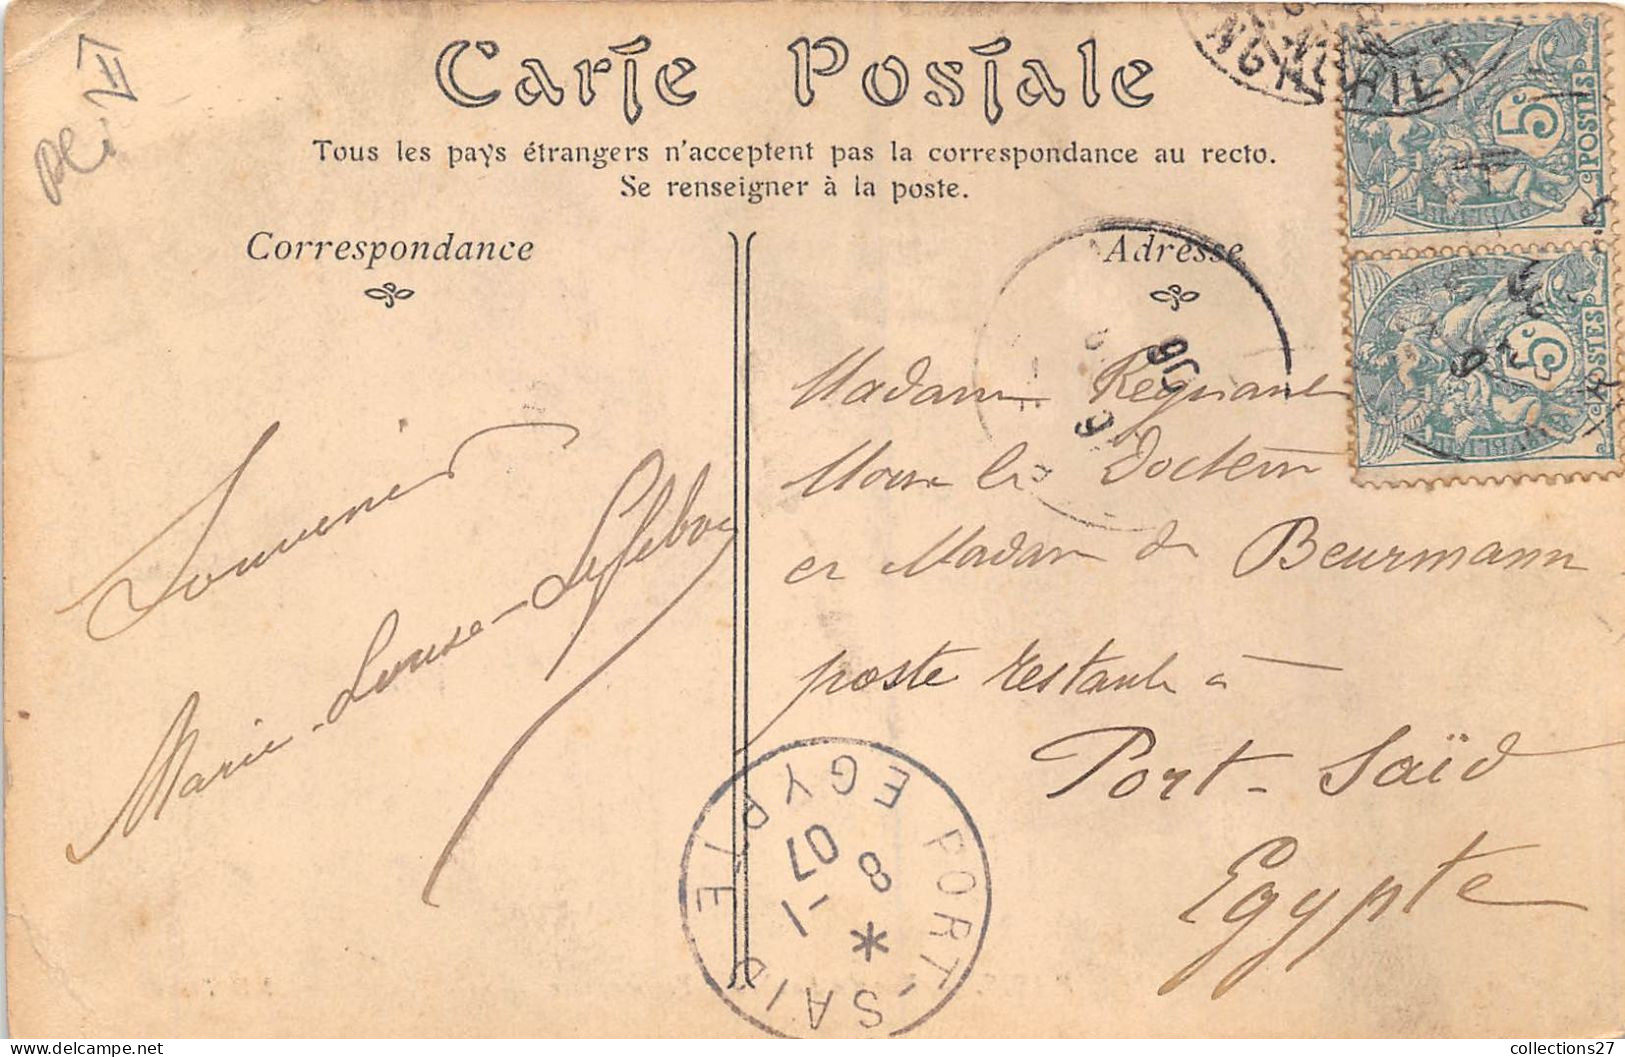 Carte Postale
Tous les pays étrangers n'acceptent pas la correspondance au recto.
Se renseigner à la poste.
Correspondance
Adresse
Souvenir
Marie-Louise-Lefebvre
Madame
le Docteur
et Madame de Beurmann
poste restante à
Port-Saïd
Egypte
5c
POSTES
5c
POSTES
PORT-SAID
EGYPTE
8
-1
07
collections27